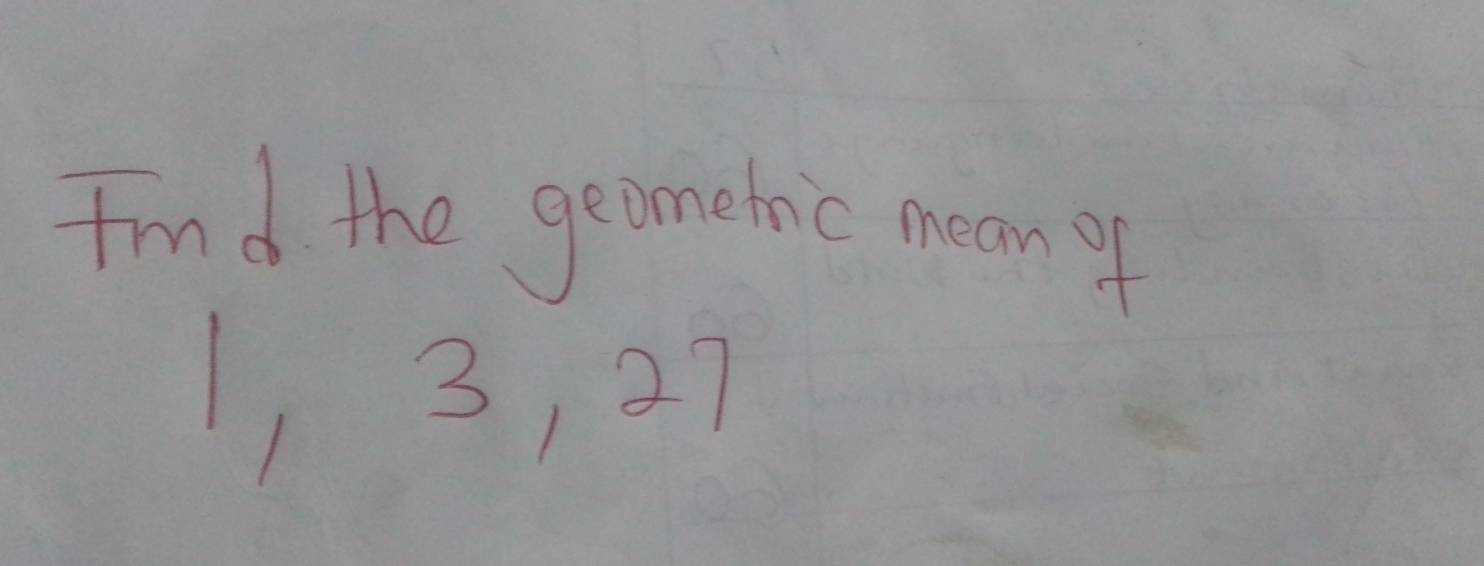 Find the geometric mean of
1, 3, 27